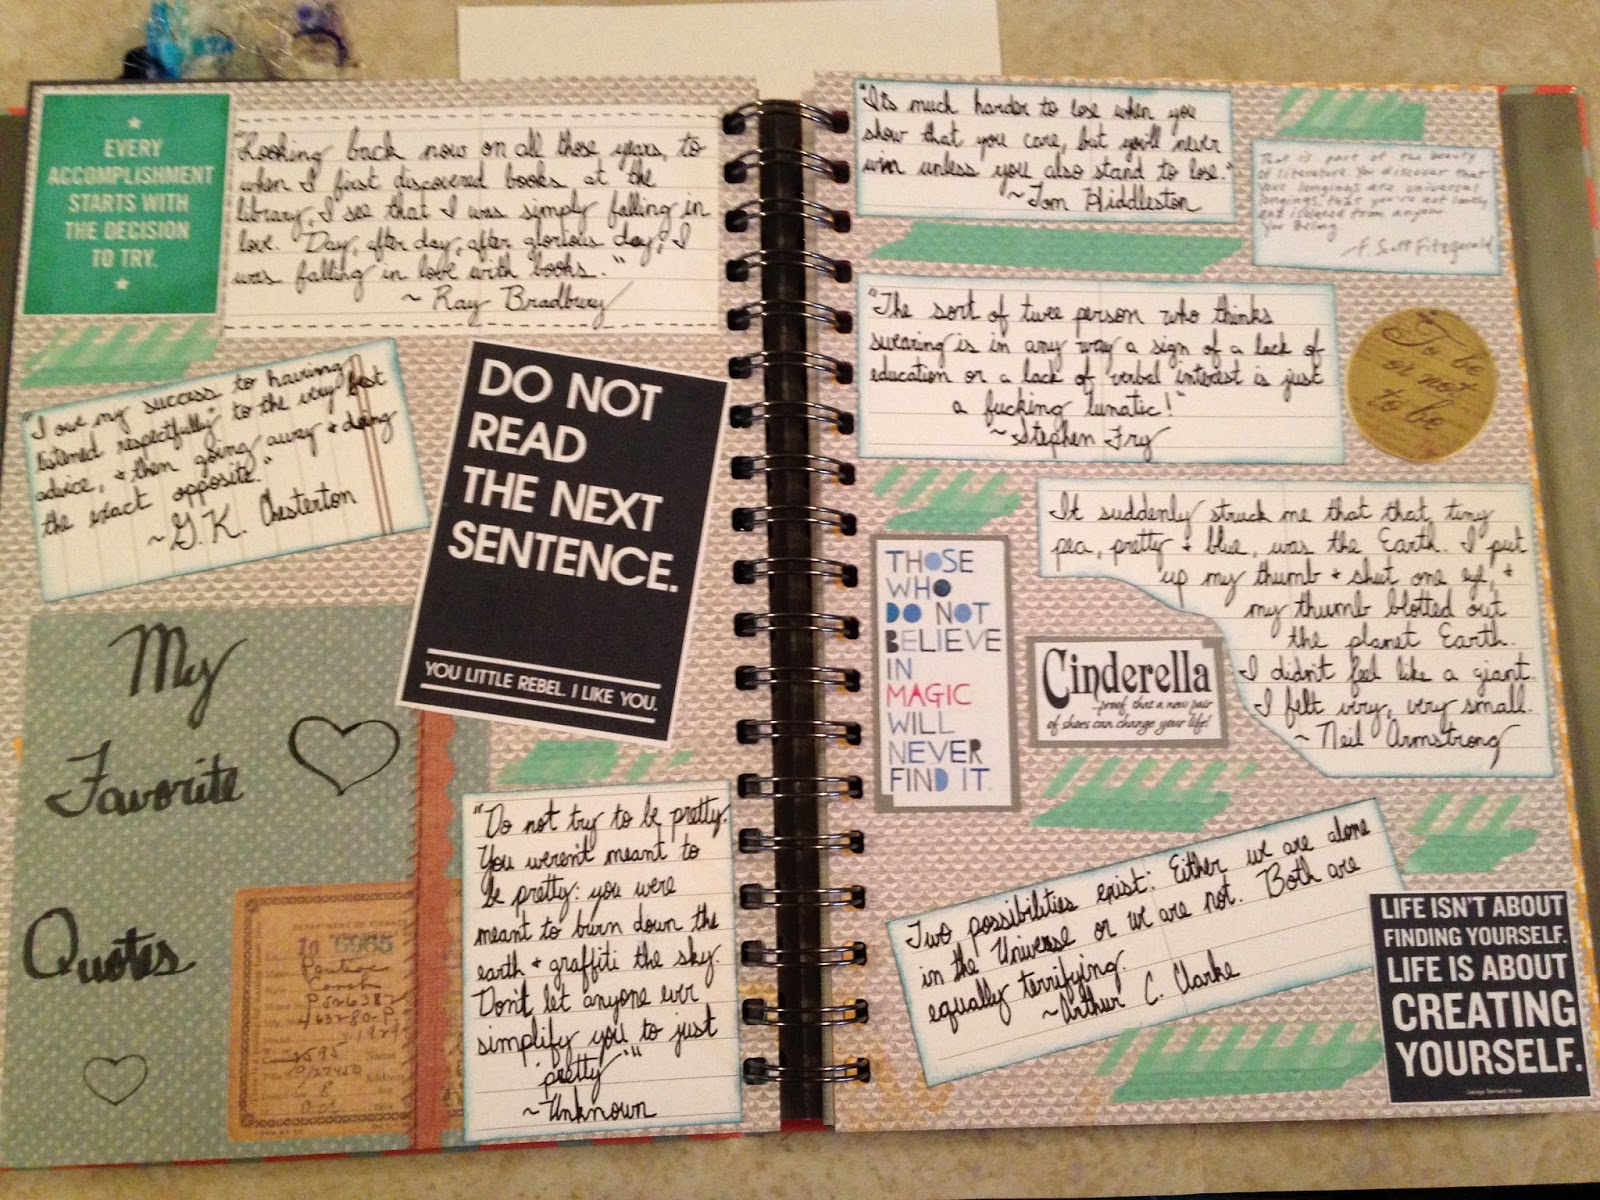 ★
EVERY
ACCOMPLISHMENT
STARTS WITH
THE DECISION
TO TRY.
★
"Looking back now on all those years, to
when I first discovered books at the
library, I see that I was simply falling in
love. Day, after day, after glorious day, I
was falling in love with books."
~ Ray Bradbury
"I owe my success to having
listened respectfully to the very best
advice, & then going away & doing
the exact opposite."
~G. K. Chesterton
DO NOT
READ
THE NEXT
SENTENCE.
YOU LITTLE REBEL. I LIKE YOU.
My
Favorite
Quotes
"Do not try to be pretty.
You weren't meant to
be pretty: you were
meant to burn down the
earth & graffiti the sky.
Don't let anyone ever
simplify you to just
'pretty'"
~Unknown
"It's much harder to lose when you
show that you care, but you'll never
win unless you also stand to lose."
~Tom Hiddleston
That is part of the beauty
of literature. You discover that
your longings are universal
longings, that you're not lonely
and isolated from anyone.
You belong
-F. Scott Fitzgerald
"The sort of twee person who thinks
swearing is in any way a sign of a lack of
education or a lack of verbal interest is just
a fucking lunatic!"
~Stephen Fry
To be
or not
to be
It suddenly struck me that that tiny
pea, pretty & blue, was the Earth. I put
up my thumb & shut one eye, &
my thumb blotted out
the planet Earth.
I didn't feel like a giant.
I felt very, very small.
~ Neil Armstrong
THOSE
WHO
DO NOT
BELIEVE
IN
MAGIC
WILL
NEVER
FIND IT.
Cinderella
-proof that a new pair
of shoes can change your life!
Two possibilities exist: Either we are alone
in the Universe or we are not. Both are
equally terrifying.
~Arthur C. Clarke
LIFE ISN'T ABOUT
FINDING YOURSELF.
LIFE IS ABOUT
CREATING
YOURSELF.
George Bernard Shaw